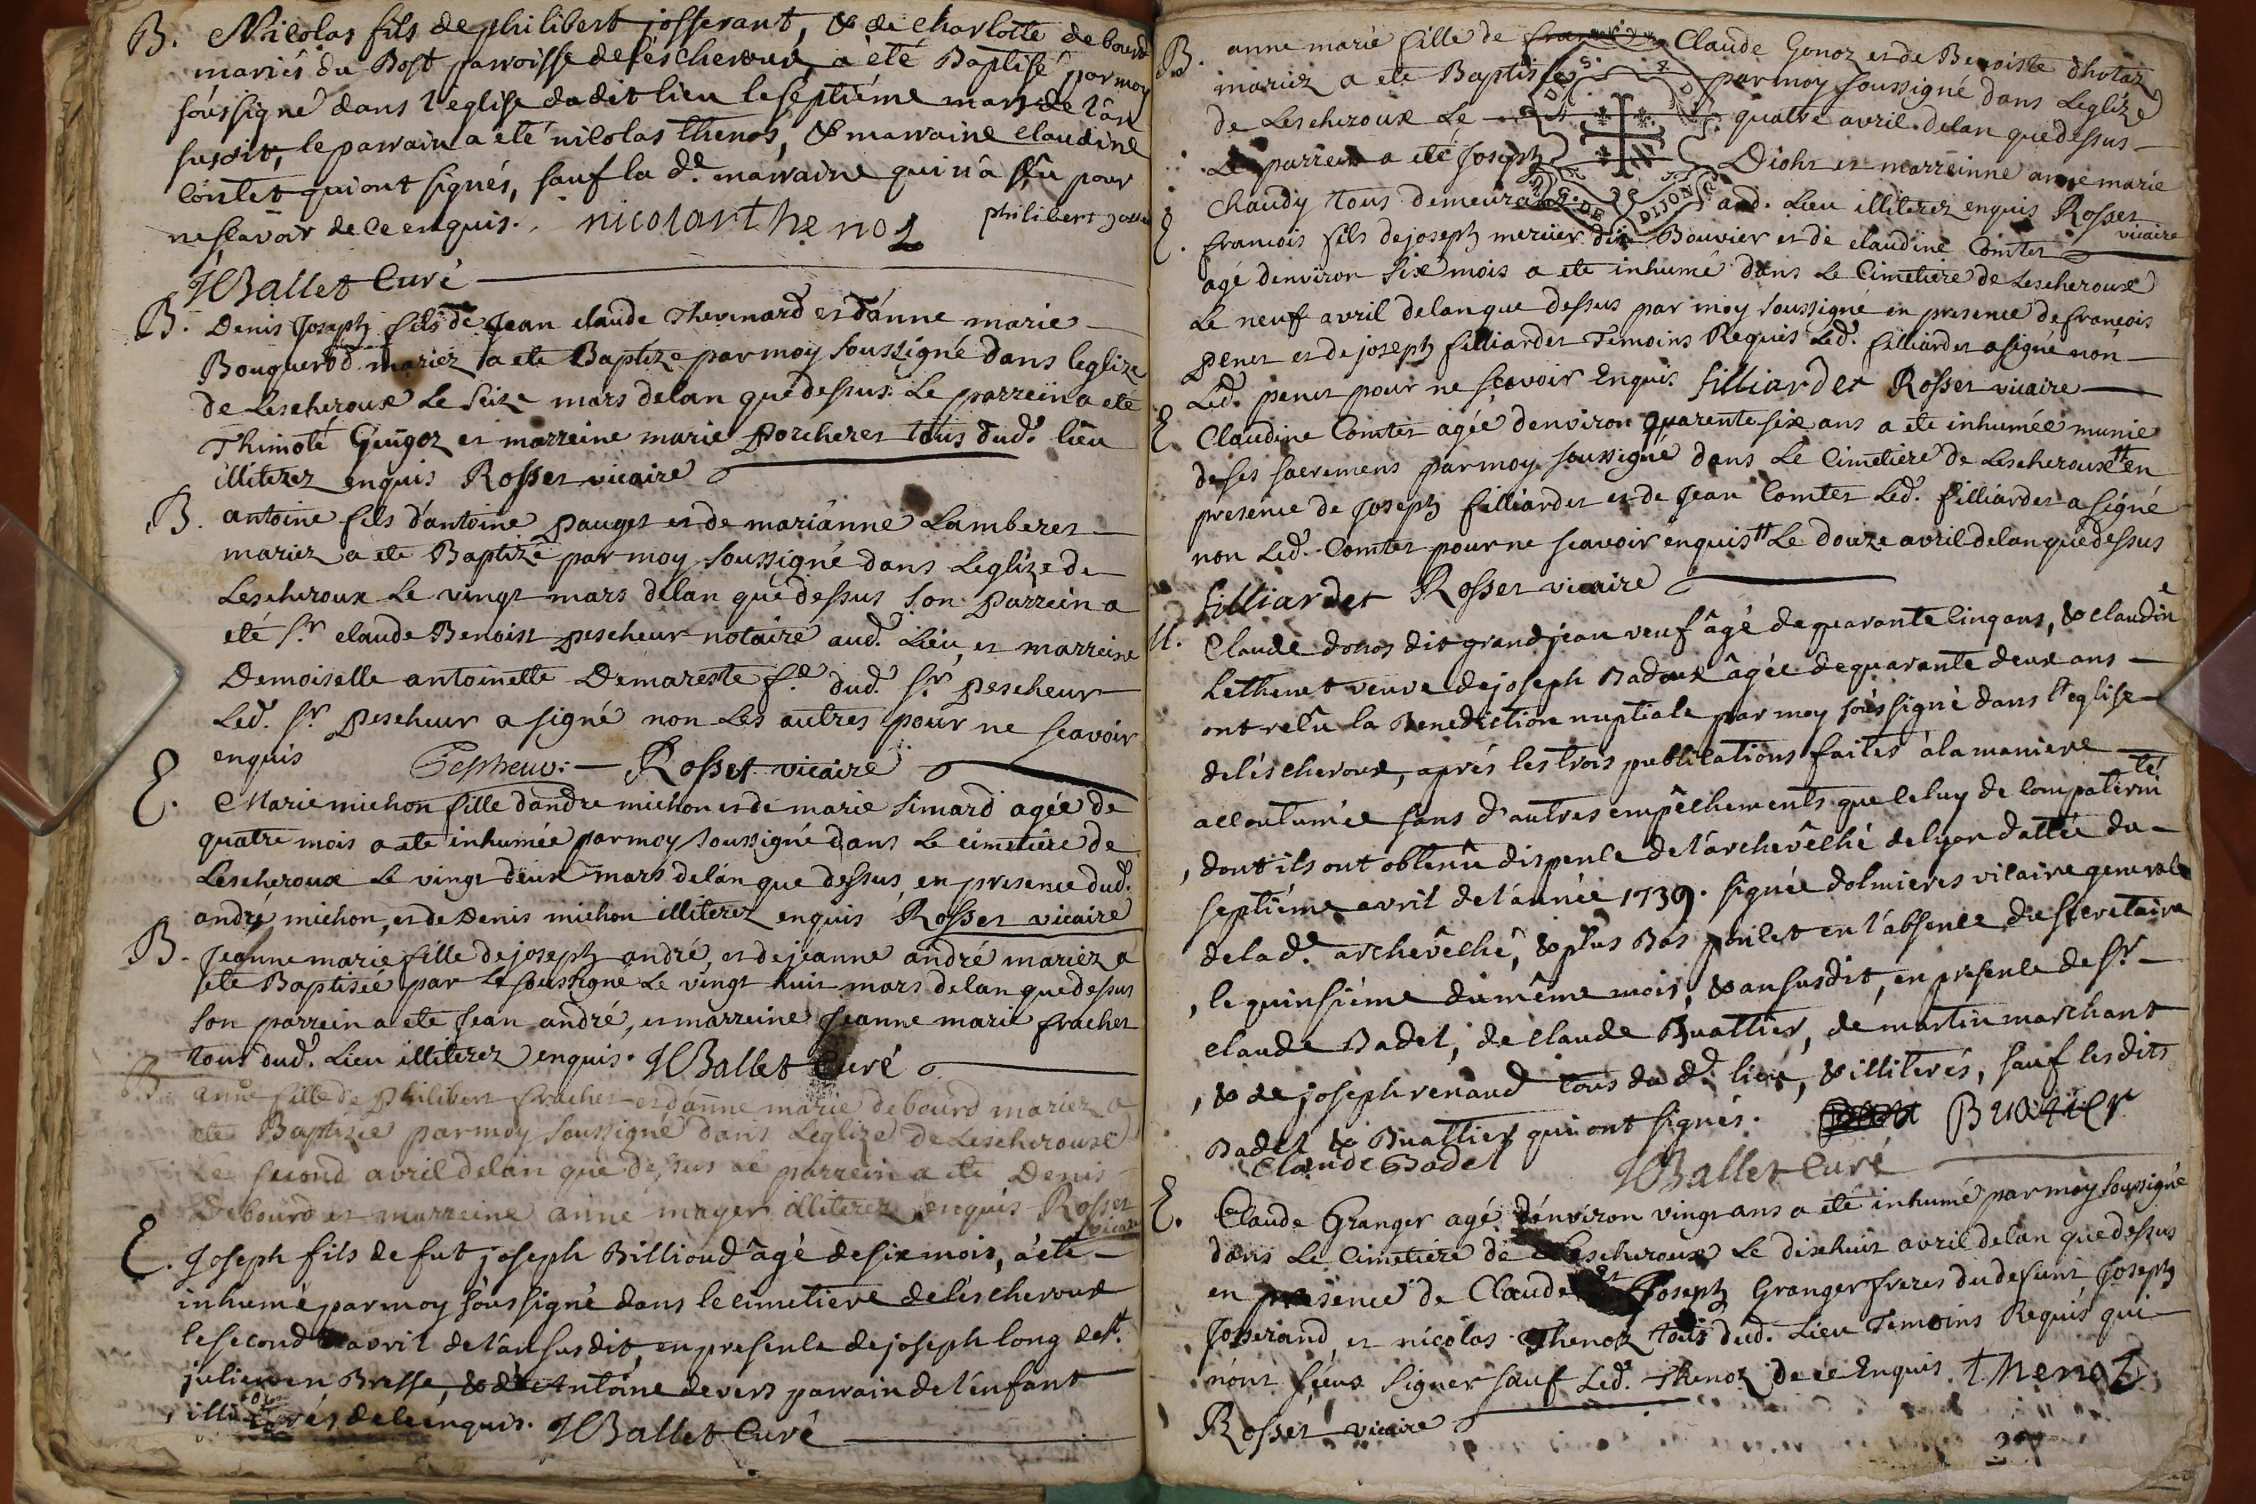 B. Nicolas fils de philibert josserant, & de Charlotte de bourd
mariés du Bost parroisse de léscheroux, a été Baptisé par moy
soûssigné dans l'église dudit lieu le septiéme mars de l'an
susdit, le parrain a été nicolas thenos, & marraine claudine
Contet qui ont signés, sauf la de. marraine qui n'a sçu pour
ne sçavoir de ce enquis. nicolas thenos philibert joss
Ballet Curé
B. Denis Joseph fils de Jean claude Thevenard et d'anne marie
Bouquerod mariez a ete Baptize par moy soussigné dans leglize
de Lescheroux Le seize mars delan que dessus. Le parrein a ete
Thimoté Gengoz et marreine marie Porcheret tous dud. lieu
illiterez enquis Rosset vicaire
B. antoine fils d'antoine pauget et de marianne Lamberet
mariez a ete Baptizé par moy soussigné dans Leglize de
Lescheroux Le vingt mars delan que dessus son Parrein a
eté sr. claude Benoist pescheur notaire aud. Lieu, et marreine
Demoiselle antoinette Demareste fe. dud. sr. pescheur
Led. sr. pescheur a signé non Les autres pour ne scavoir
enquis Pescheur. Rosset vicaire
E. Marie michon fille d'andre michon et de marie simard agée de
quatre mois a ete inhumée par moy soussigné dans Le cimetiere de
Lescheroux Le vingt deux mars delan que dessus en presence dud.
andré michon, et de Denis michon illiterez enquis Rosset vicaire
B. Jeanne marie fille de joseph andré, et de jeanne andré mariez a
ete Baptisée par Le soussigné Le vingt huit mars delan que dessus
son parrein a ete Jean andré, et marreine Jeanne marie frachet
tous dud. Lieu illiterez enquis. Ballet Curé
B. anne fille de Philibert frachet et d'anne marie debourd mariez a
ete Baptizée par moy soussigné dans Leglize de Lescheroux
Le second avril delan que dessus le parrein a ete Denis
Debourd et marreine anne mayer illiterez enquis Rosset
vicaire
E. Joseph fils de fut joseph Billioud âgé de six mois, a eté
inhumé par moy soûssigné dans le cimetiere de léscheroux
le second avril de l'an susdit, en presence de joseph long de st.
julien en Bresse, & de Antoine devers parrain de l'enfant
illiterés de ce enquis. Ballet Curé
B. anne marie fille de Claude Gonoz et de Benoiste dhotaz
mariez a ete Baptisée par moy soussigné dans Leglize
de Lescheroux Le quatre avril delan que dessus
Le parrein a eté Joseph Diohr et marreinne anne marie
Chaudy tous demeurant aud. Lieu illiterez enquis Rosset
vicaire
DE DIJON
E. francois fils de joseph mercier dit Bouvier et de claudine Comtet
agé denviron six mois a ete inhumé dans Le Cimetiere de Lescheroux
Le neuf avril delan que dessus par moy soussigné en presence de francois
penet et de joseph filliardet Temoins Requis Led. filliardet a signé non
Led. penet pour ne scavoir Enquis filliardet Rosset vicaire
E. Claudine Comtet agée denviron quarente six ans a ete inhumée munie
de ses sacremens par moy soussigné dans Le Cimetiere de Lescheroux en
presence de Joseph filliardet et de Jean Comtet Led. filliardet a signé
non Led. Comtet pour ne scavoir enquis Le douze avril delan que dessus
filliardet Rosset vicaire
M. Claude donos dit grandjean veuf âgé de quarante cinq ans, & claudine
Lethenet veuve de joseph Badoux âgée de quarante deux ans
ont reçû la Benediction nuptiale par moy soûssigné dans l'eglise
de léscheroux, aprés les trois publications faites à la maniere
accoutumée sans d'autres empêchements que celuy de compaternité
, dont ils ont obtenû dispense de l'archevêché de lyon dattée du
septiéme avril de l'année 1739. signée dolmieres vicaire general
de la de. archevêché, & plus Bas poncet en l'absence du secretaire
, le quinsiéme du même mois, & an susdit, en presence de sr.
claude Badel, de claude Buattier, de martin marchant
, & de joseph renaud tous du d. lieu, & illiterés, sauf les dits
Badel & Buattier qui ont signés. Buatier
Claude Badel Ballet Curé
E. Claude Granger agé d'environ vingt ans a eté inhumé par moy soussigné
dans Le Cimetiere de Lescheroux Le dix huit avril delan que dessus
en presence de Claude et Joseph Granger freres du defunt Joseph
Josserand et nicolas Thenoz tous dud. Lieu Temoins Requis qui
n'ont sceus signer sauf Led. Thenoz de ce Enquis. thenoz
Rosset vicaire